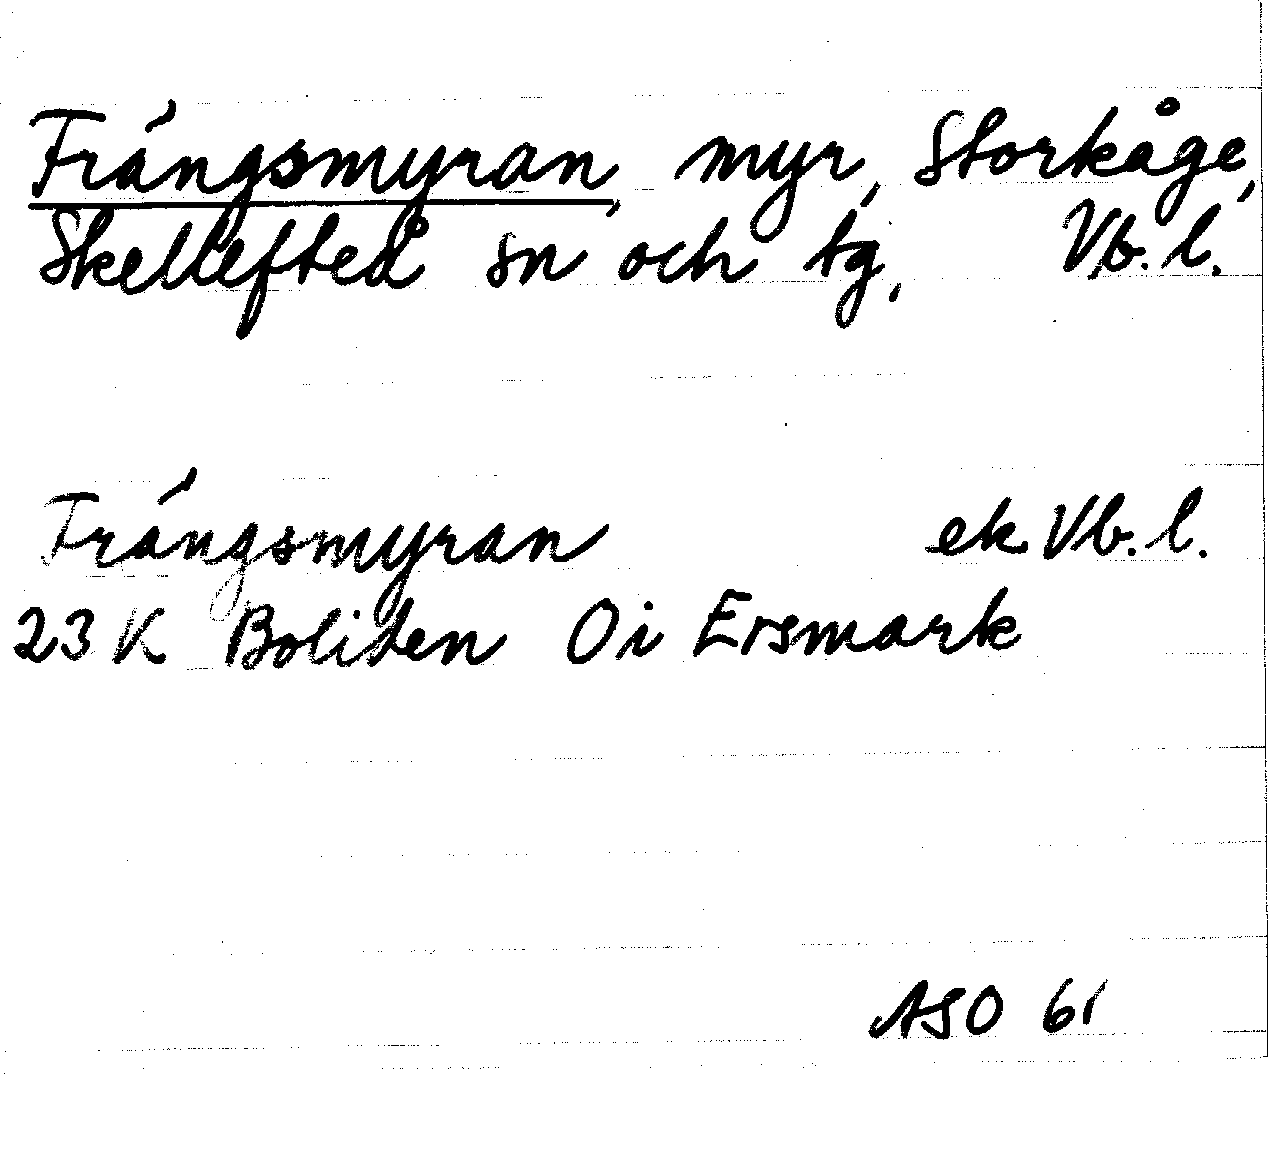 Trångsmyran, myr, Storkåge,
Skellefteå sn och tg, Vb. l.
Trångsmyran ek Vb. l.
23 K Boliden Oi Ersmark
ASO 61